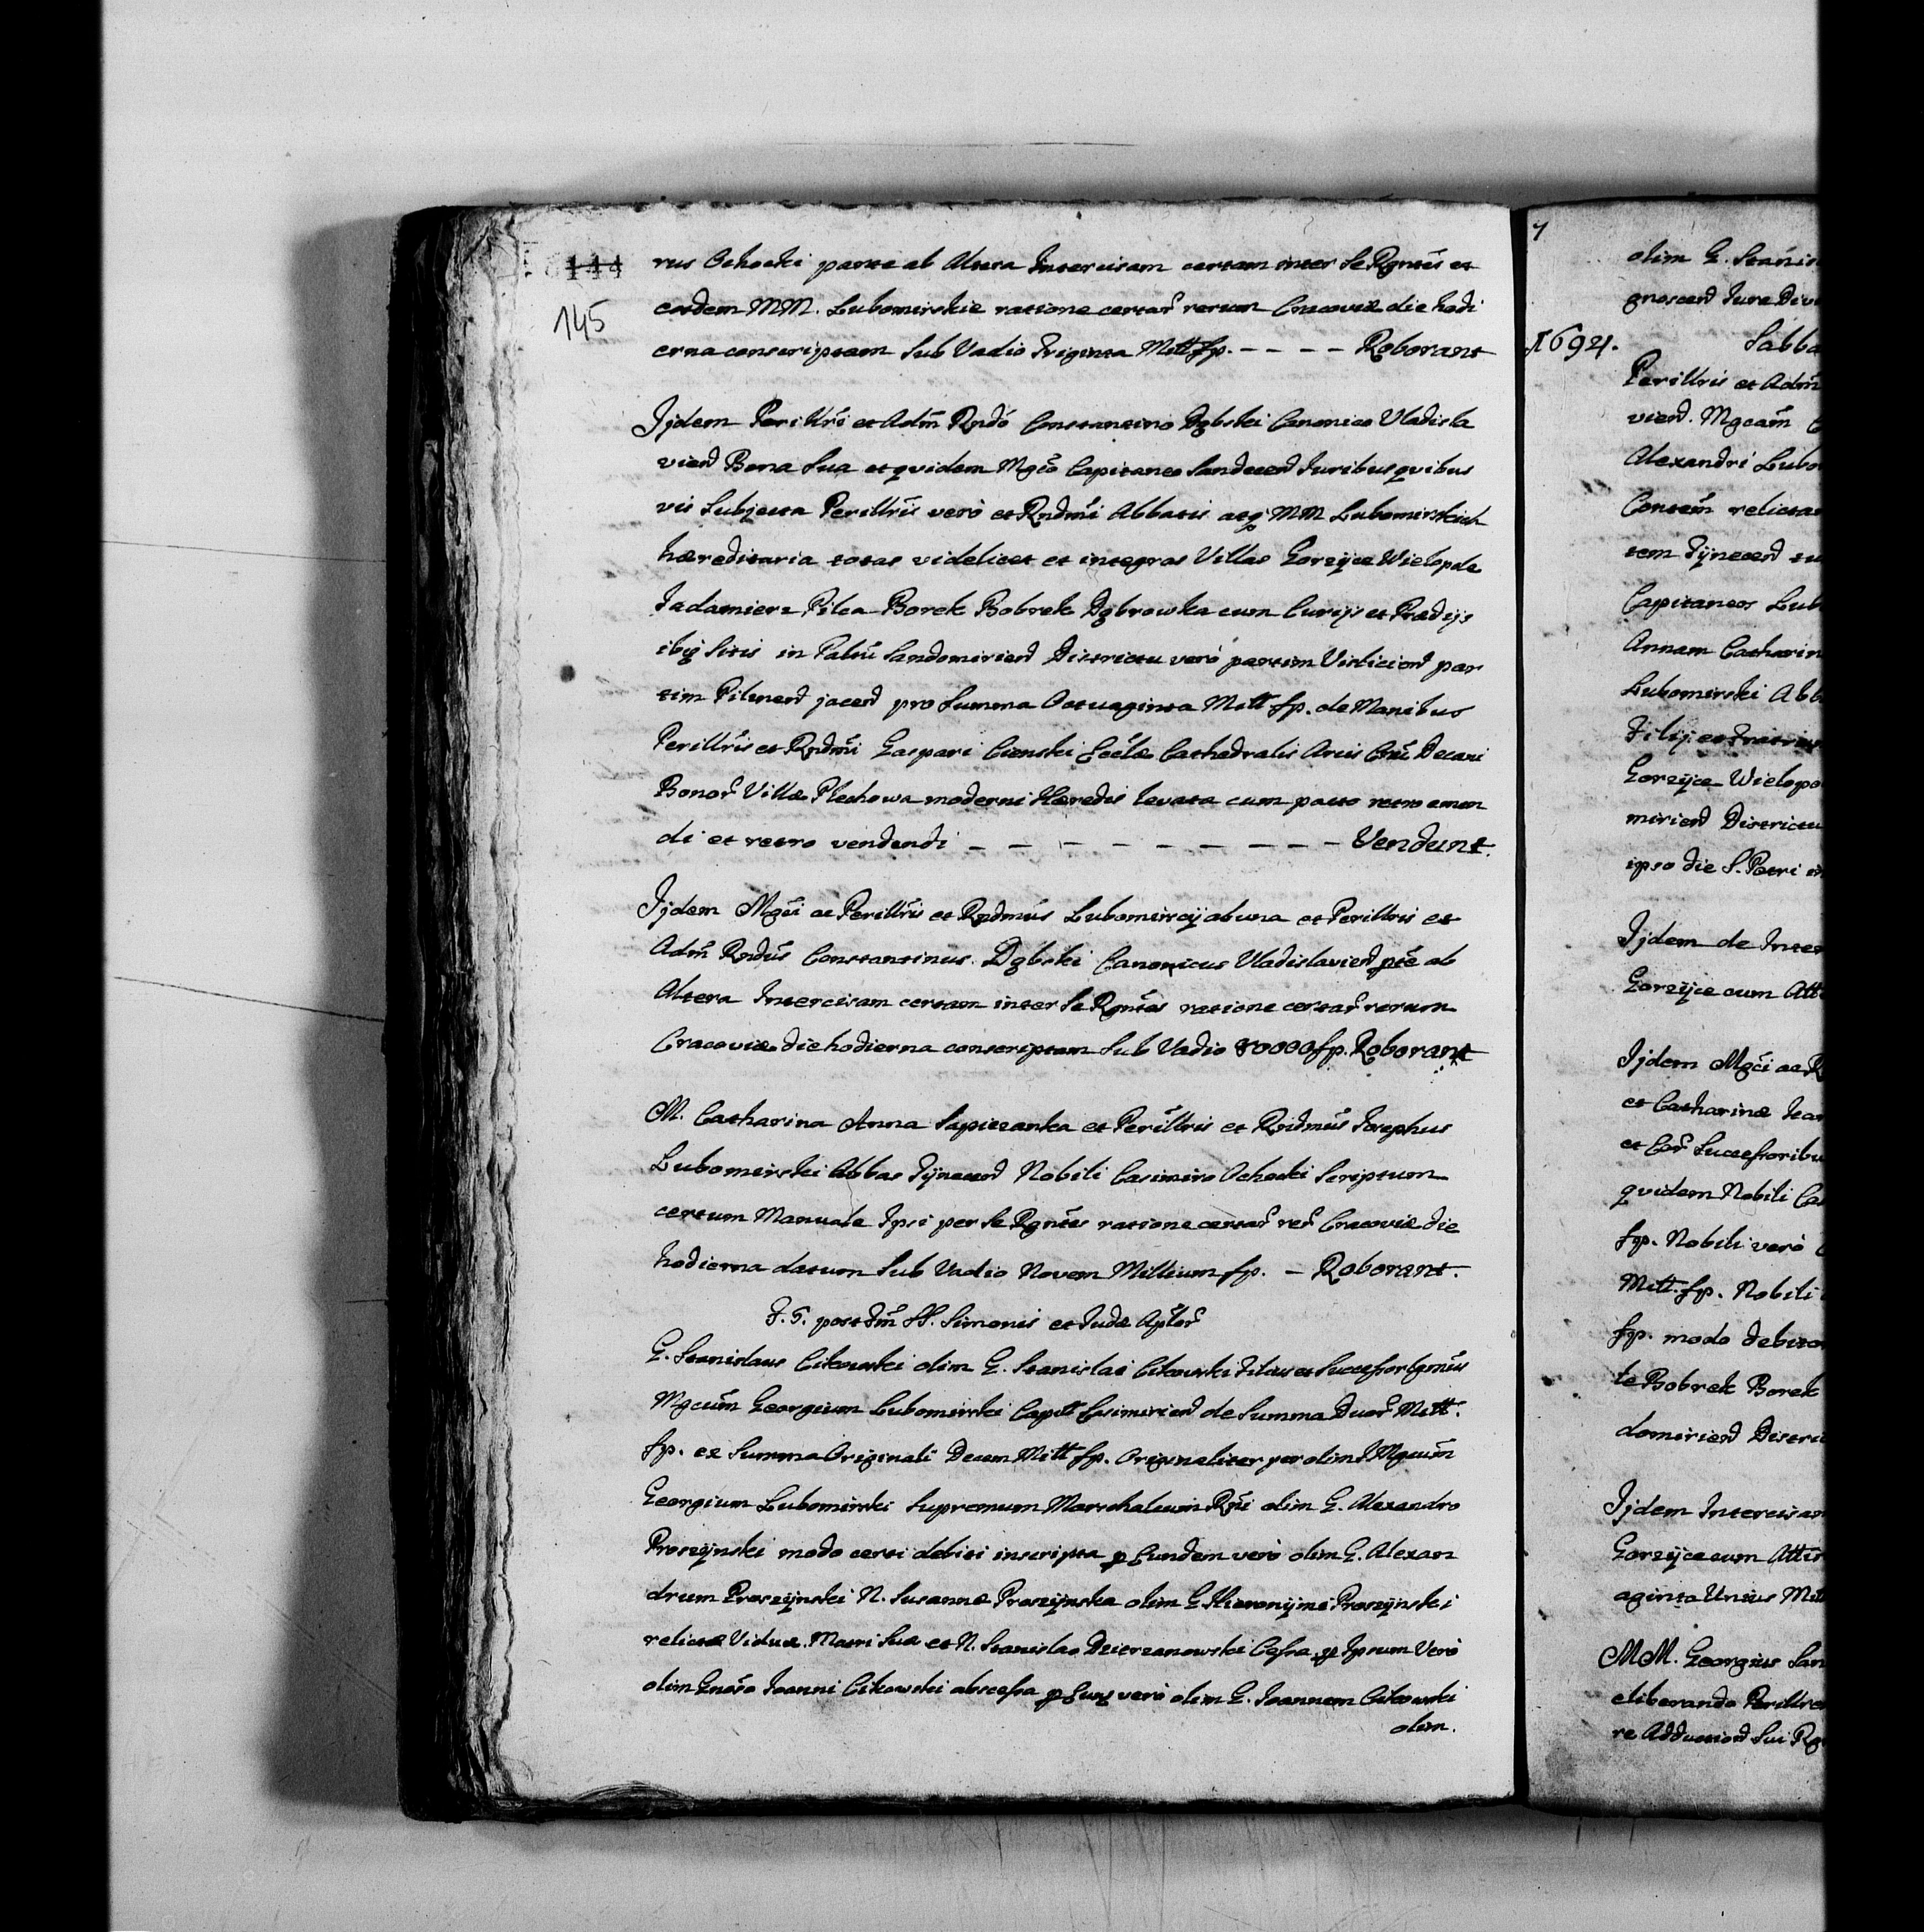 144
145
rus Ochocki parte ab Altera Intercisam certam inter Se Rgntes et
eosdem MM. Lubomirskie ratione certar rerum Cracoviæ die hodi
erna conscriptam Sub Vadio Triginta Mill fp. - - - - Roborant
Ijdem Perillri et Adm Rndo Constantino Dąbski Canonico Vladisla
viend Bona Sua et quidem Mgco Capitaneo Sandecend Juribus quibus
vis Subjecta Perillris verò et Rndmi Abbatis atq MM Lubomirskich
hæreditaria totas videlicet et integras Villas Gorzÿce Wielopole
Zadamierz Pilca Borek Bobrek Dąbrowka cum Curijs et Prædijs
ibiq Sitis in Paltu Sandomiriend Districtu verò partim Visliciend par
tim Pilsnend jacend pro Summa Octuaginta Mill fp. de Manibus
Perillris et Rndmi Gaspari Cienski Eccle Cathedralis Arcis Crac Decani
Bonor Villæ Plechowa moderni Hæredis levata cum pacto retro emen
di et retro vendendi - - - - - - - - - - Vendunt.
Ijdem Mgci ac Perillris et Rndmus Lubomirscÿ ab una et Perillris et
Adm Rndus Constantinus Dąbski Canonicus Vladislaviend pte ab
Altera Intercisam certam inter Se Rgntes ratione certar rerum
Cracoviæ die hodierna conscriptam Sub Vadio 80000 fp. Roborant
M. Catharina Anna Sapiezanka et Perillris et Rndmus Josephus
Lubomirski Abbas Tÿnecend Nobili Casimiro Ochocki Scriptum
certum Manuale Ipsi per Se Rgntes ratione certar rer Cracoviæ die
hodierna datum Sub Vadio Novem Millium fp. - Roborant.
F. 5. post Fm SS. Simonis et Judæ Aplor
G. Stanislaus Cikowski olim G. Stanislai Cikowski Filius et Successor
Mgcum Georgium Lubomirski Capit Casimiriend de Summa Duor Mill.
fp. ex Summa Originali Decem Mill fp. Originaliter per olim Mgcum
Georgium Lubomirski Supremum Marschalcum Rni olim G. Alexandro
Proszÿnski modo certi debiti inscripta p Eundem verò olim G. Alexan
drum Proszÿnski N. Susannæ Proszÿnska olim G. Hieronÿmi Proszÿnski
relictæ Viduæ Matri Suæ et N. Stanislao Dzierzanowski Cessa p Ipsum Verò
olim Gnoso Joanni Cikowski abscessa p hunc verò olim G. Joannem Cikowski
olim.
7
olim G. Stanis
gnoscend Jure Div
1694. Sabba
Perillris et Adm
viend. Mgcam C
Alexandri Lubo
Contem relicta
tem Tÿnecend
Capitaneos Lub
Annam Catharin
Lubomirski Abb
Filij et Fratres
Gorzÿce Wielopo
miriend Districtu
ipso die S. Petri
Ijdem de Inter
Gorzÿce cum Att
Ijdem Mgci ac R
et Catharinæ
et Eor Successoribu
quidem Nobili Ca
fp. Nobili verò
Mill. fp. Nobili
fp. modo debito
le Bobrek Borek
domiriend Distric
Ijdem Intercisam
Gorzÿce cum Attin
aginta Unius Mill
MM. Georgius San
eliberando Perillre
re Adductiond Sui Rg